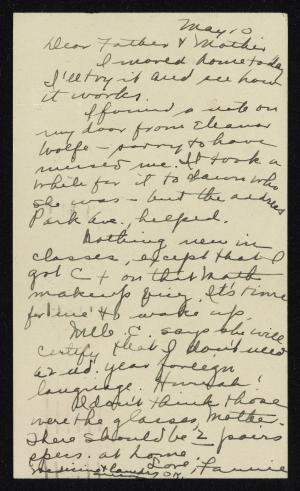 May 10
Dear Father & Mother
I moved home today
I'll try it and see how
it works.
I found a note on
my door from Eleanor
Wolfe - sorry to have
missed me. It took a
while for it to dawn who
she was - but the address
Park Ave. helped.
Nothing new in
classes, except that I
got C + on that Math
makeup quiz. It's time
for me to wake up.
Mlle. C. says she will
certify that I don't need
a 2nd. year foreign
language. Hurrah!
I don't think those
were the glasses, Mother.
There should be 2 pairs
specs. at home.
Love, Fannie